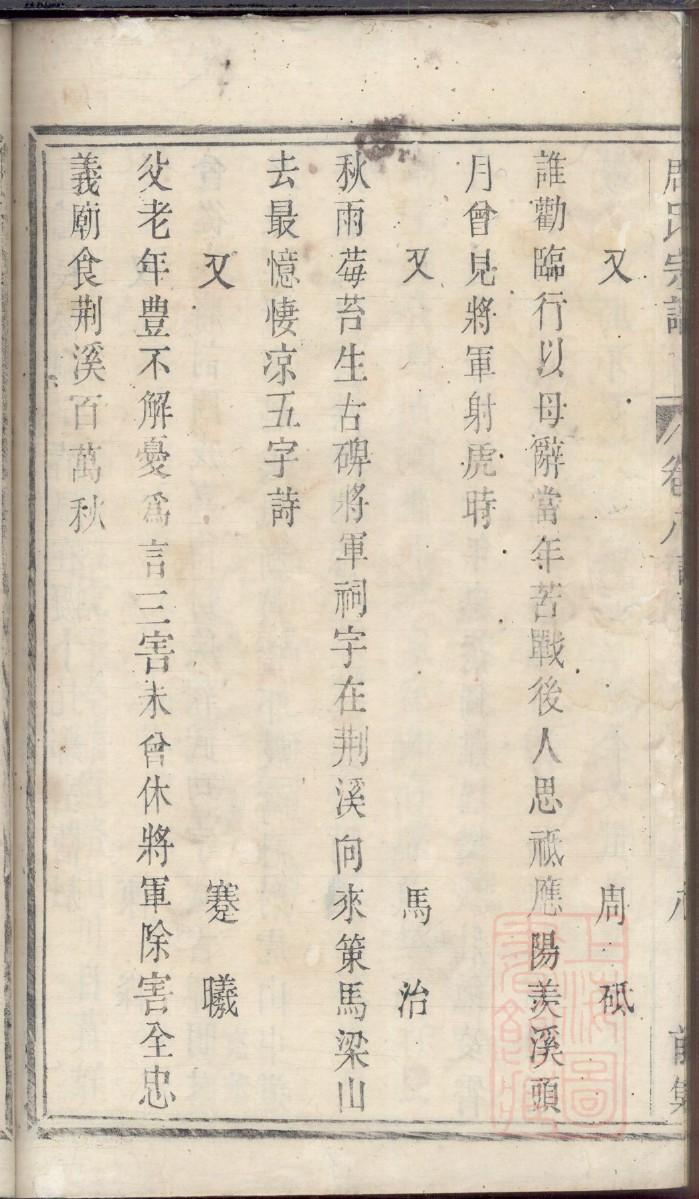 周氏宗譜 卷八
又 周砥
誰勸臨行以母辭當年苦戰後人思祗應陽羡溪頭
月曾見將軍射虎時
又 馬治
秋雨莓苔生古碑將軍祠宇在荆溪向來策馬梁山
去最憶悽凉五字詩
又 蹇曦
父老年豊不解憂爲言三害未曾休將軍除害全忠
義廟食荆溪百萬秋